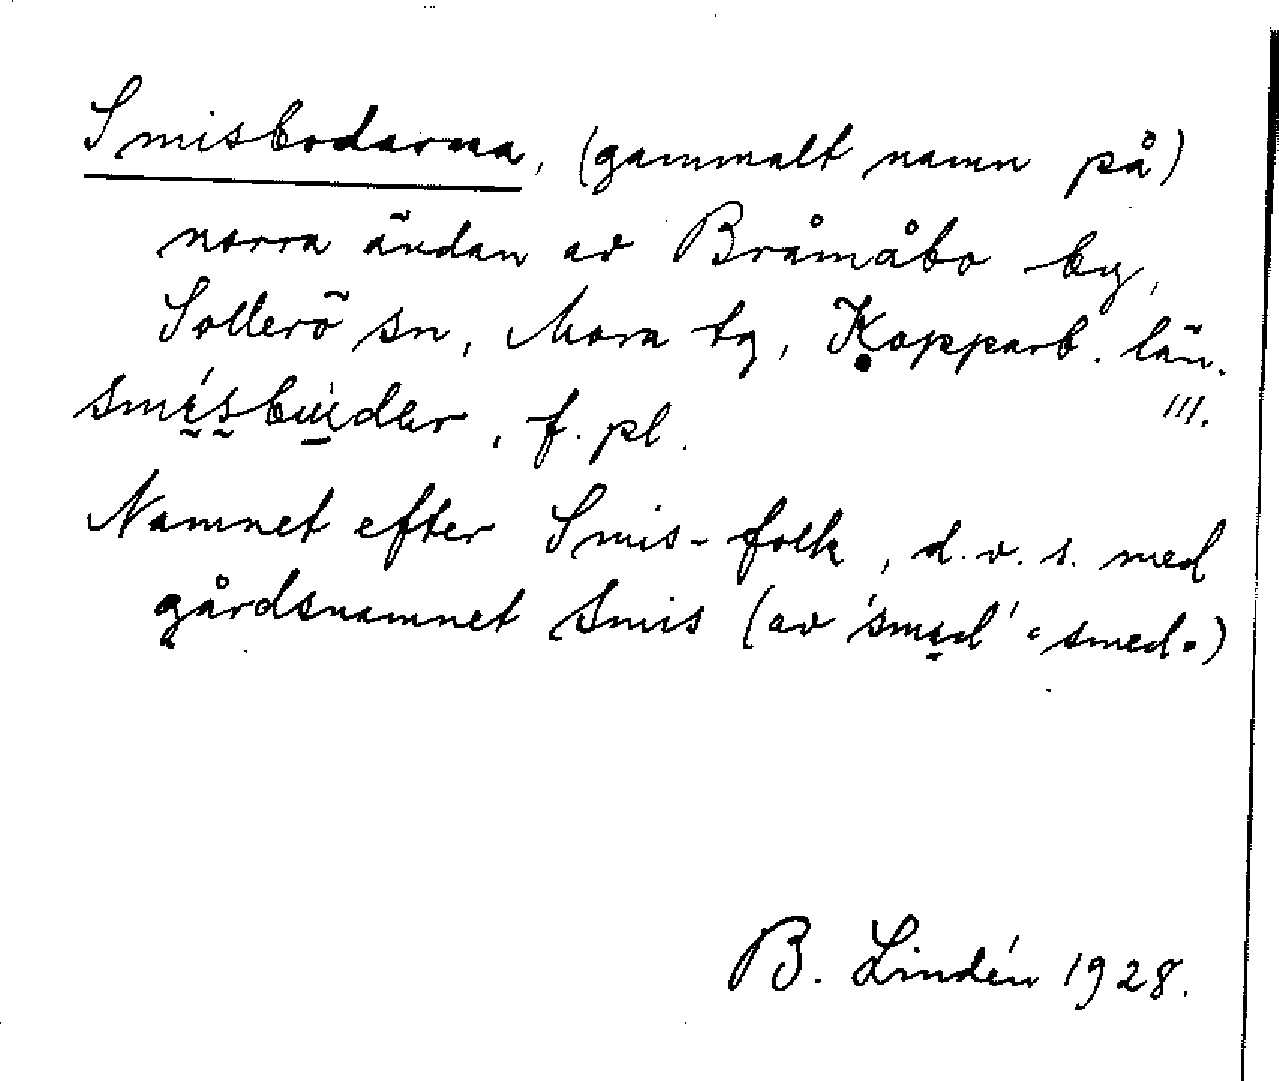 Smisbodarna, (gammalt namn på)
norra ändan av Bråmåbo by,
Sollerö sn, Mora tg, Kopparb. län.
III.
, f. pl.
Namnet efter Smis-folk, d.v.s. med
gårdsnamnet Smis (av 'smed' "smed")
B. Lindén 1928.